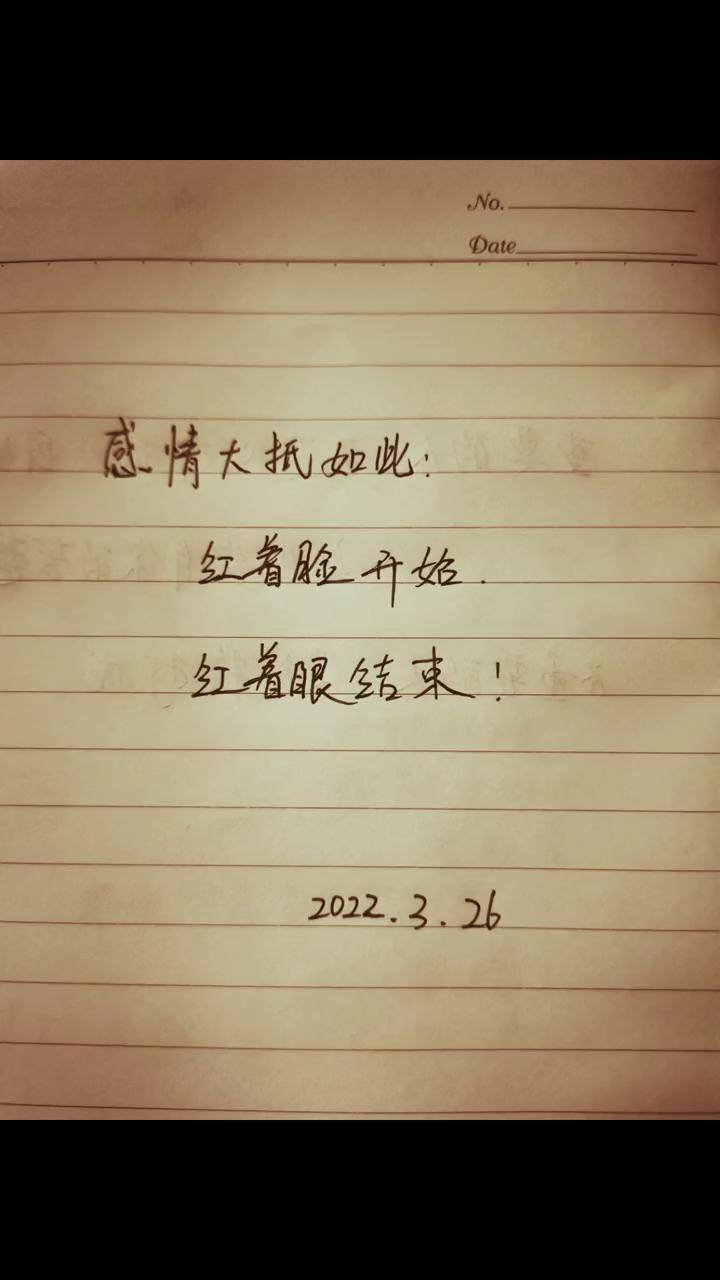 No.
Date
感情大抵如此:
红着脸开始.
红着眼结束!
2022.3.26